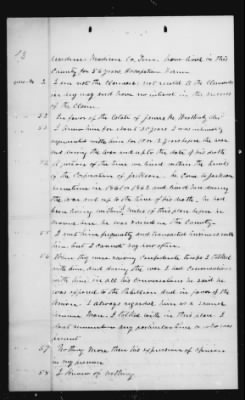 13
residence Madison Co, Tenn. have lived in this
County for 56 years, Occupation Farmer
2 I am not the Claimant, not related to the Claimant
in any way and have no interest in the success
of the Claim.
52 In favor of the Estate of James H.
53 I knew him for about 30 years I was intimately
acquainted with him for 10 or 12 years before the war
and during the war and up to the date of his death
54 A portion of the time we lived within the limits
of the Corporation of Jackson. he Came to Jackson
sometime in 1861 or 1862 and lived here during
the war and up to the time of his death, he had
been living within miles of this place before he
moved here he was raised in the County.
55 I met him frequently and transacted business with
him but I cannot say how often.
56 When they were raising Confederate troops I talked
with him and during the war I had Conversations
with him in all his Conversations he said he
was opposed to the Rebellion and in favor of the
Union. I always regarded him as a
Union Man. I talked with in this place I
dont remember any particular time or who was
present
57 Nothing More than his expressions of opinions
in my presence
58 I Know of nothing